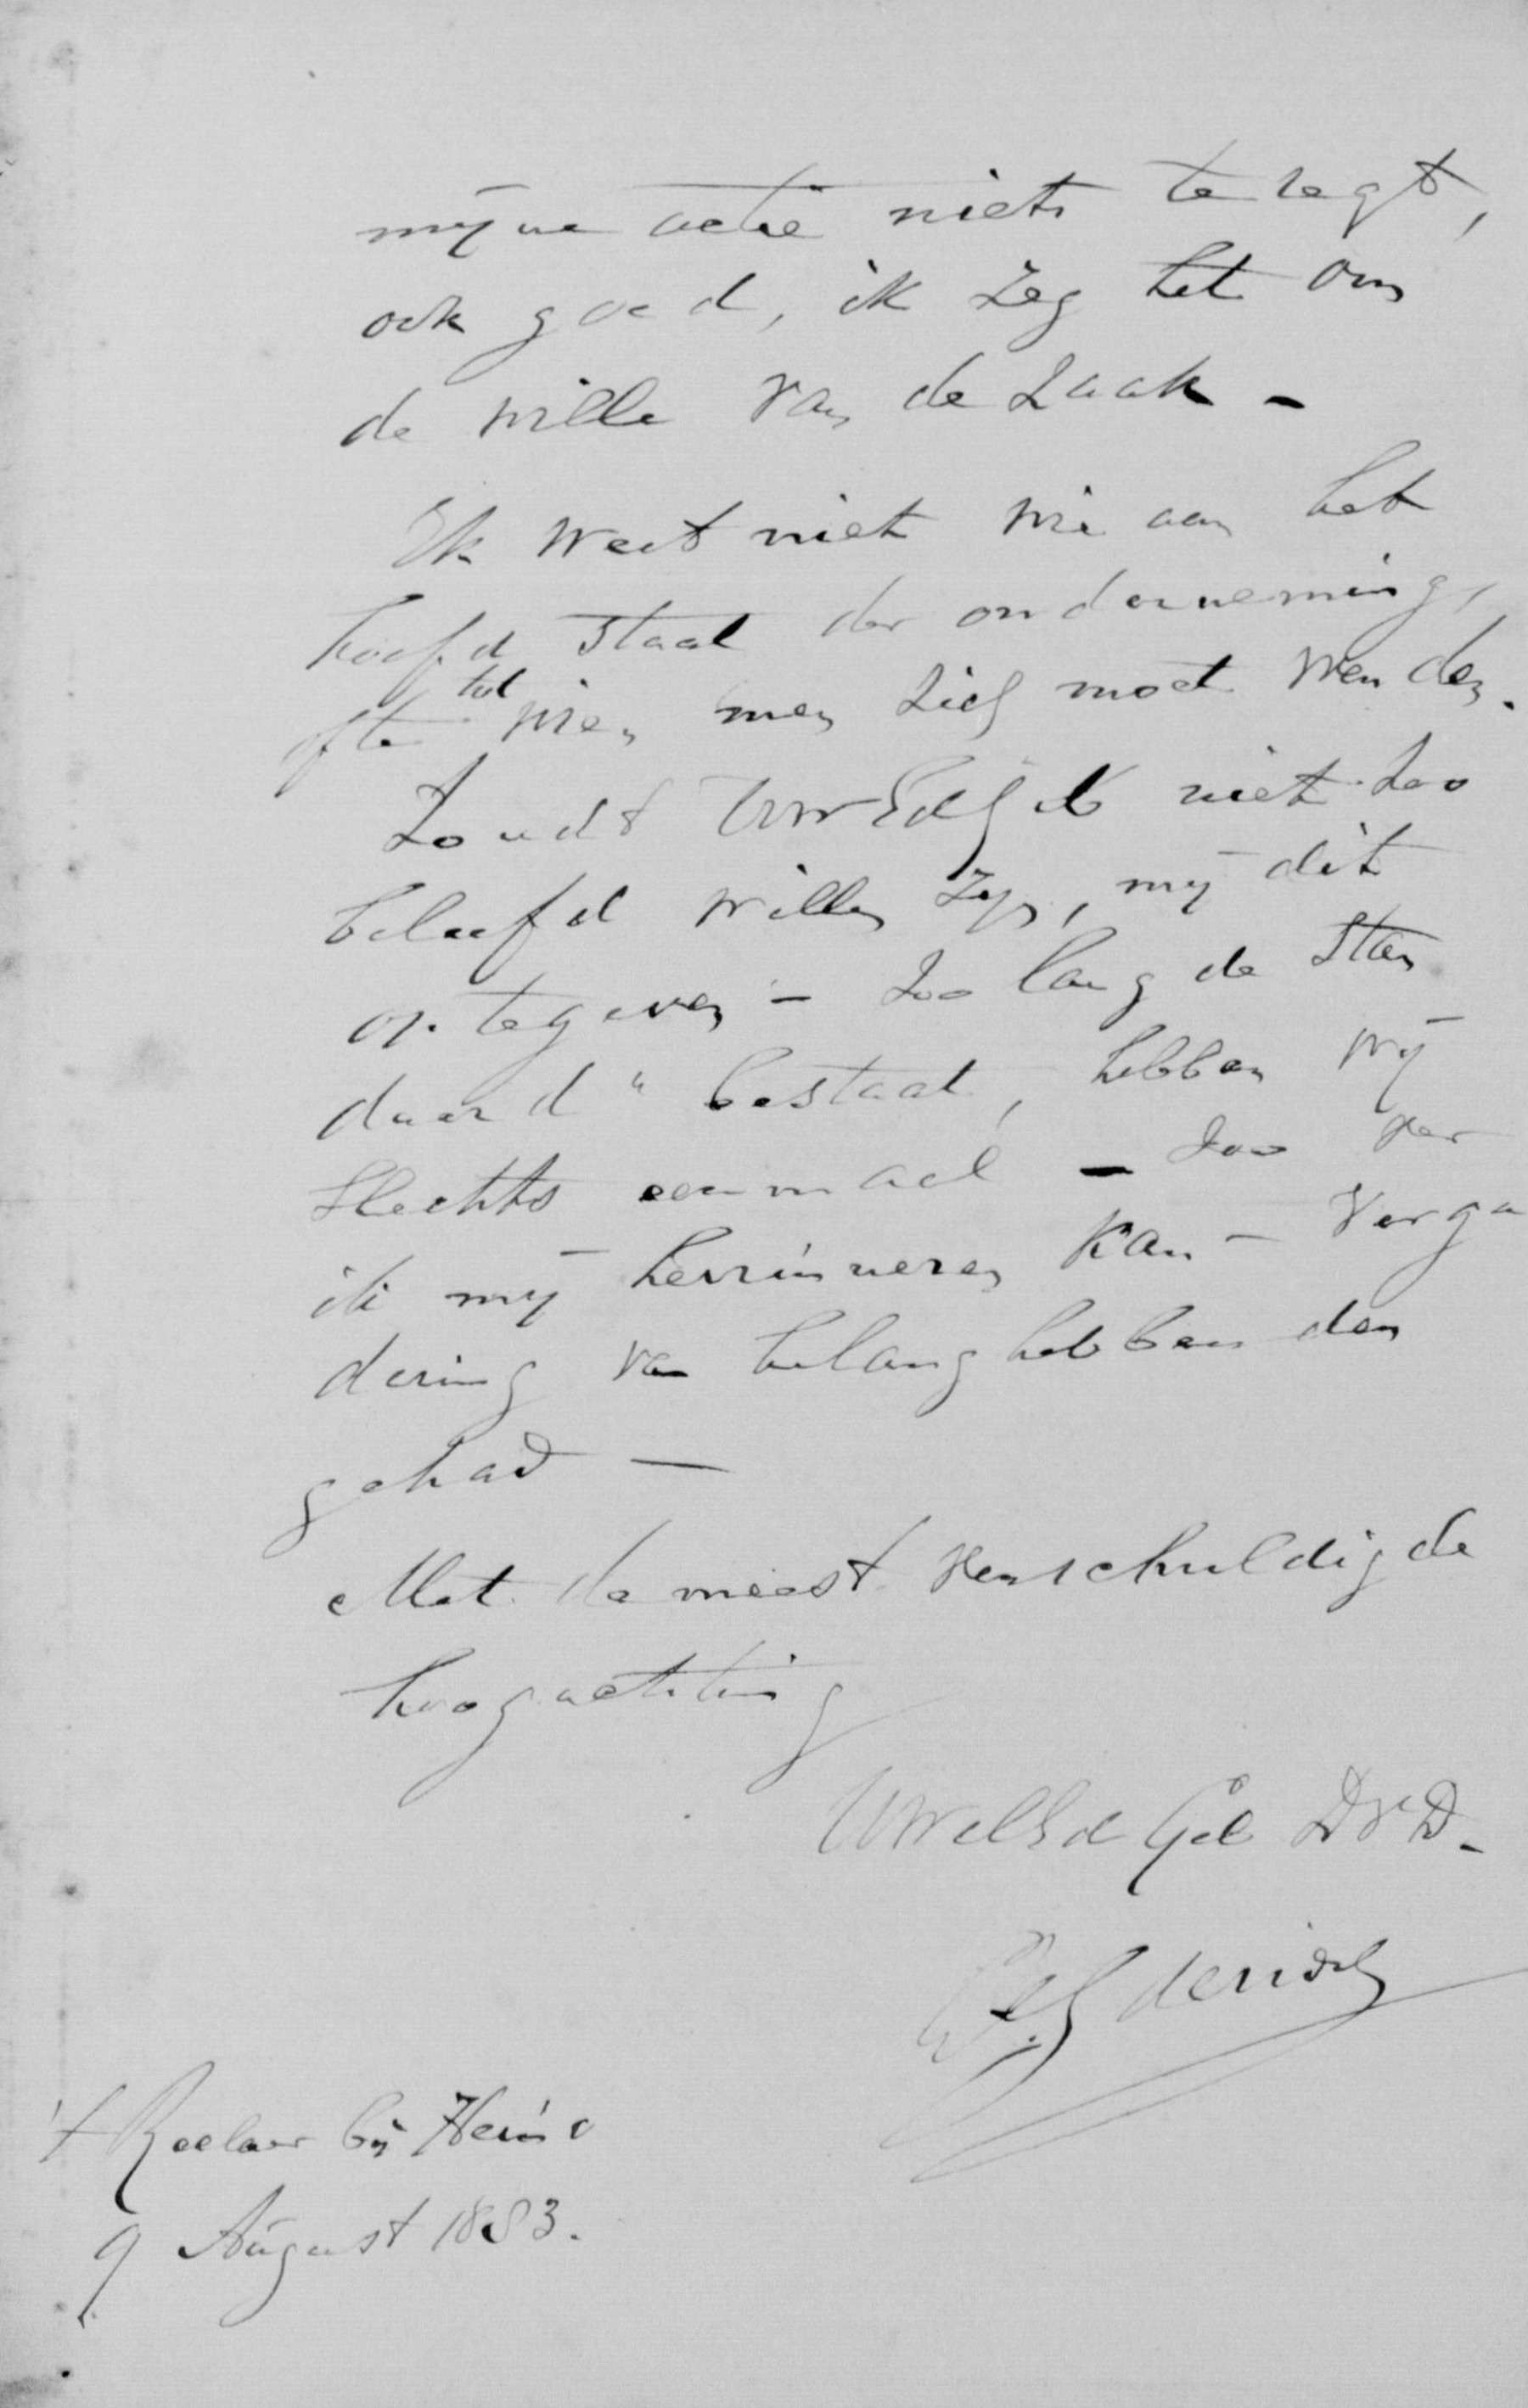 mijne actie niets te zegt,
ook goed, ik zeg het om
de wille van de zaak -
Ik weet niet wie aan het
hoofd staat der onderneming,
ofte tot wien men zich moet wenden.
Zoudt UwEdG niet zoo
beleefd willen zijn, mij dit
op te geven - Zoo lang de Stan
daard" bestaat, hebben wij
slechts eenmaal - zoo ver
ik mij herrinneren kan - verga
dering van belanghebbenden
gehad -
Met de meest verschuldigde
hoogachting
UWelEdGeb DVD.
't Reelaer bij Heino
9 August 1883.